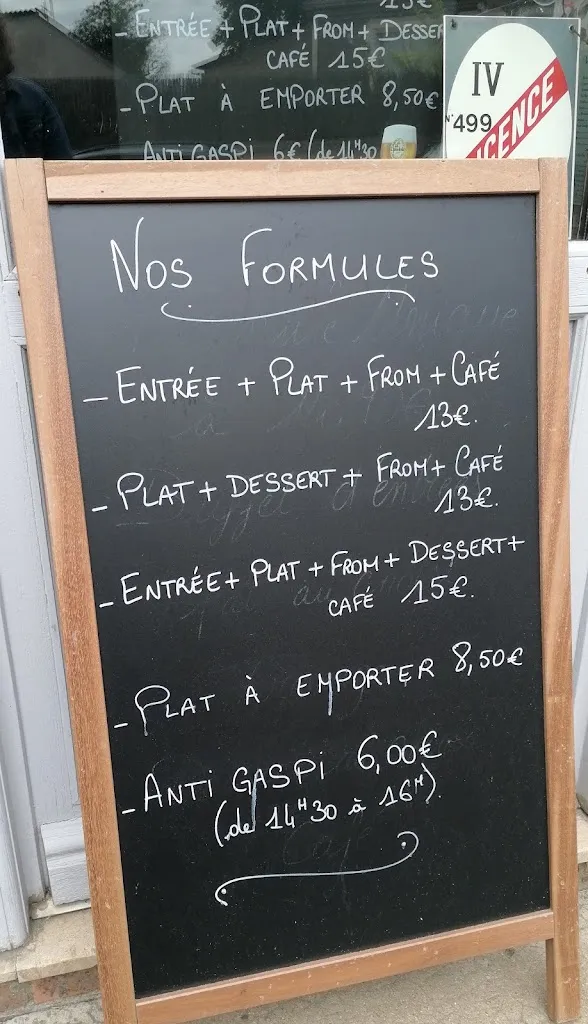 - ENTRÉE + PLAT + FROM + DESSER
CAFÉ 15€
- PLAT À EMPORTER 8,50€
ANTI GASPI 6€ (de 14H30
IV
N° 499
LICENCE
NOS FORMULES
- ENTRÉE + PLAT + FROM + CAFÉ
13€.
- PLAT + DESSERT + FROM + CAFÉ
13€.
- ENTRÉE + PLAT + FROM + DESSERT +
CAFÉ 15€.
- PLAT À EMPORTER 8,50€
- ANTI GASPI 6,00€
(de 14H30 à 16H).